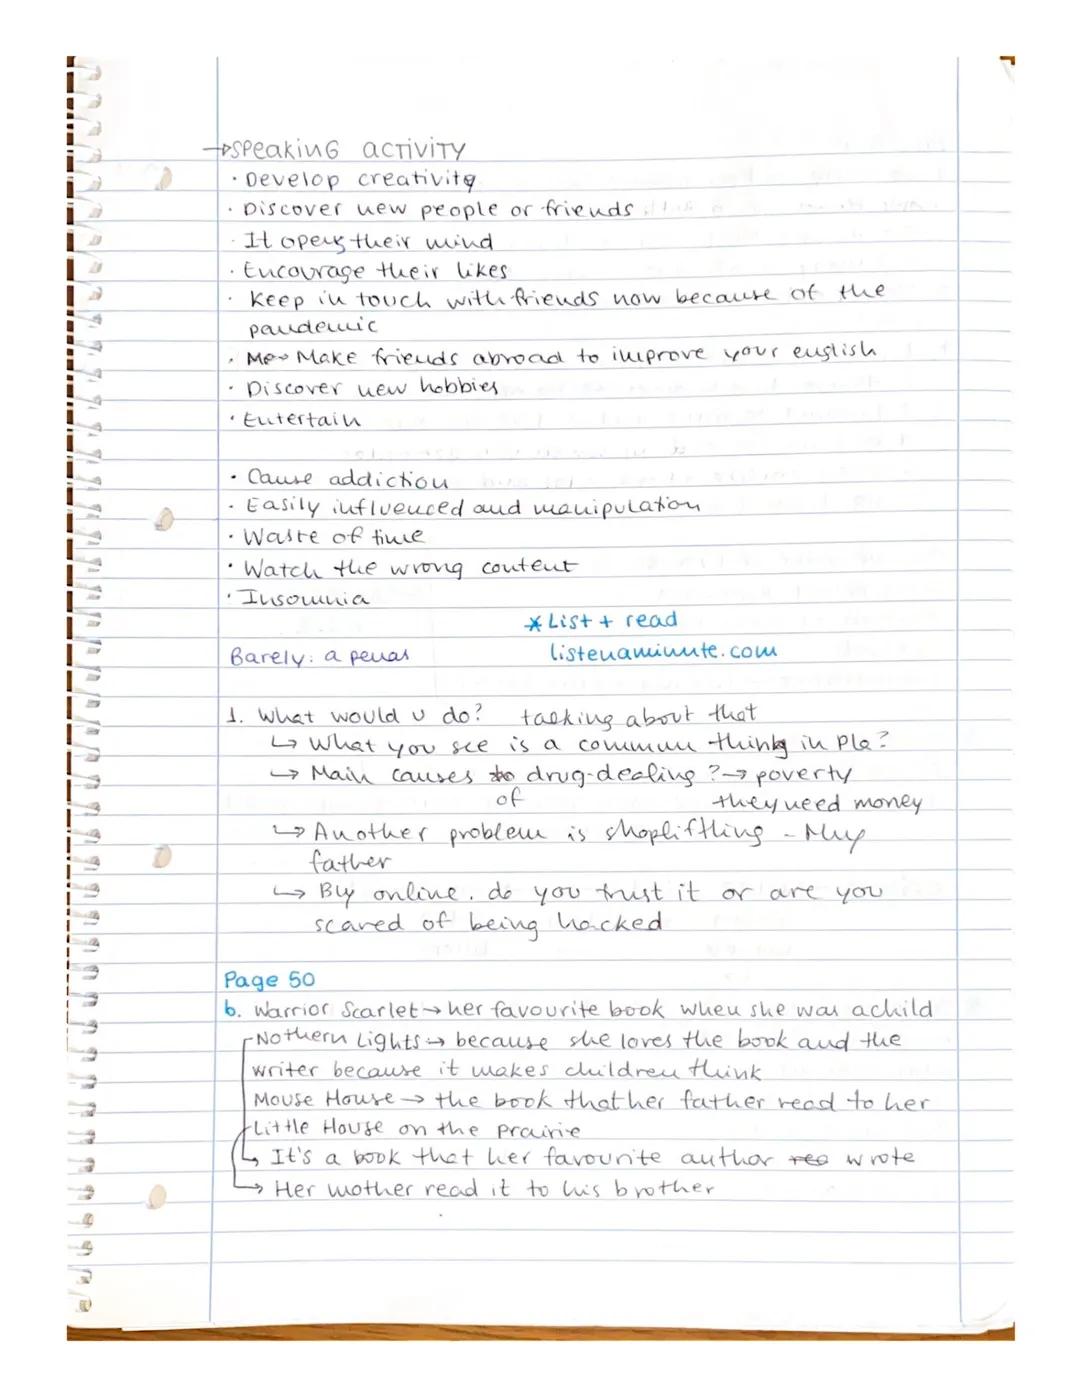 →SPeakinG acTiViTY
· Develop creativity
· Discover new people or friends
· It opens their mind
· Encourage their likes
· Keep in touch with friends now because of the
pandemic
· Make friends abroad to improve your english
· Discover new hobbies
· Entertain
· Cause addiction
· Easily influenced and manipulation
· Waste of time
· Watch the wrong content
· Insomnia
* List + read
Barely: a penas listenaminute.com
1. What would u do? talking about that
↳ What you see is a commun thing in Pla?
↳ Main causes of drug-dealing? → poverty
they need money
↳ Another problem is shopliftling - My
father
↳ By online. do you trust it or are you
scared of being hacked
Page 50
b. Warrior Scarlet → her favourite book when she was a child
Nothern Lights → because she loves the book and the
writer because it makes children think
Mouse House → the book that her father read to her
Little House on the Prairie
↳ It's a book that her favourite author wrote
↳ Her mother read it to his brother